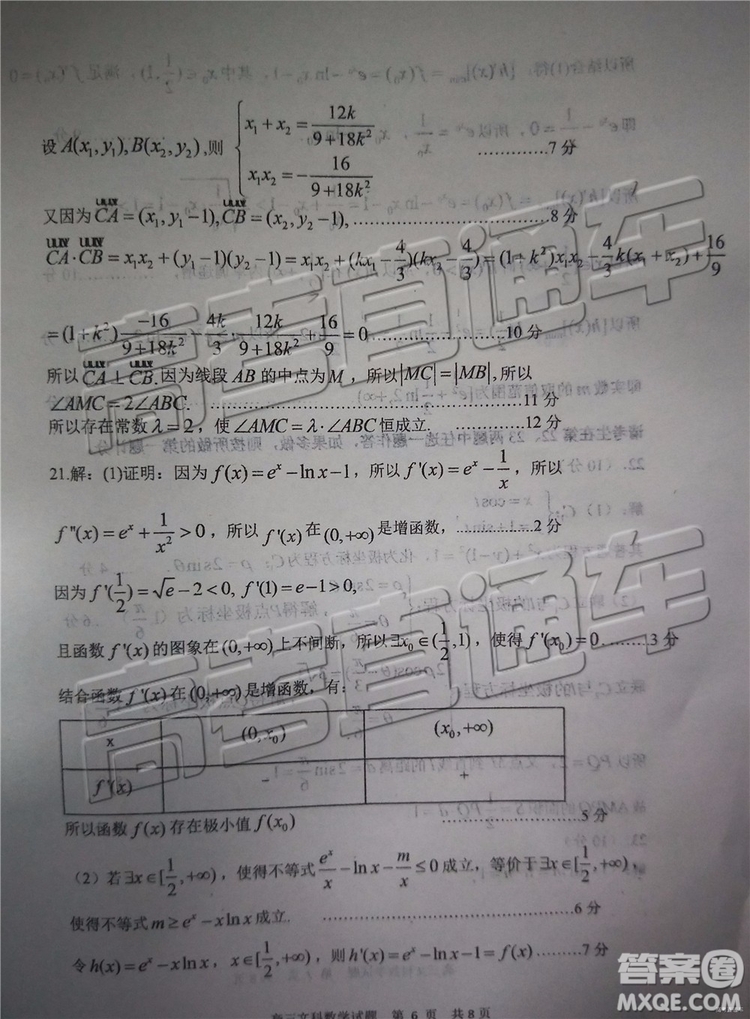 设 A(x₁,y₁),B(x₂,y₂),则 { x₁+x₂=12k/(9+18k²) x₁x₂=-16/(9+18k²) .............7 分
又因为 CA=(x₁,y₁-1),CB=(x₂,y₂-1),..........................................8分
CA·CB=x₁x₂+(y₁-1)(y₂-1)=x₁x₂+(kx₁-4/3)(kx₂-4/3)=(1+k²)x₁x₂-4/3k(x₁+x₂)+16/9
=(1+k²)-16/(9+18k²)-4k/3·12k/(9+18k²)+16/9=0..........................10 分
所以 CA⊥CB.因为线段 AB 的中点为M，所以|MC|=|MB|,所以
∠AMC=2∠ABC. ..........................................11 分
所以存在常数λ=2，使∠AMC=λ·∠ABC 恒成立. ..............12 分
21.解：(1)证明：因为 f(x)=eˣ-lnx-1，所以 f'(x)=eˣ-1/x，所以
f''(x)=eˣ+1/x²>0，所以 f'(x)在(0,+∞)是增函数，............2 分
因为 f'(1/2)=√e-2<0, f'(1)=e-1>0,
且函数 f'(x)的图象在(0,+∞)上不间断，所以∃x₀∈(1/2,1)，使得 f'(x₀)=0.........3 分
结合函数 f'(x)在(0,+∞)是增函数，有：
x (0,x₀) (x₀,+∞)
f'(x) - +
所以函数 f(x)存在极小值 f(x₀) ..........................5 分
（2）若∃x∈[1/2,+∞)，使得不等式 eˣ/x-lnx-m/x≤0 成立，等价于∃x∈[1/2,+∞)，
使得不等式 m≥eˣ-xlnx 成立. ..........................................6 分
令 h(x)=eˣ-xlnx，x∈[1/2,+∞)，则 h'(x)=eˣ-lnx-1=f(x)..........7 分
高三文科数学试题 第 6 页 共 8 页
高考直通车
高考直通车
答案圈
MXQE.COM